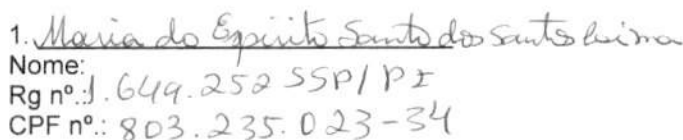 1. Maria do Espirito Santo dos Santos Lima
Nome:
Rg nº.:1.649.252 SSP/PI
CPF nº.: 803.235.023-34